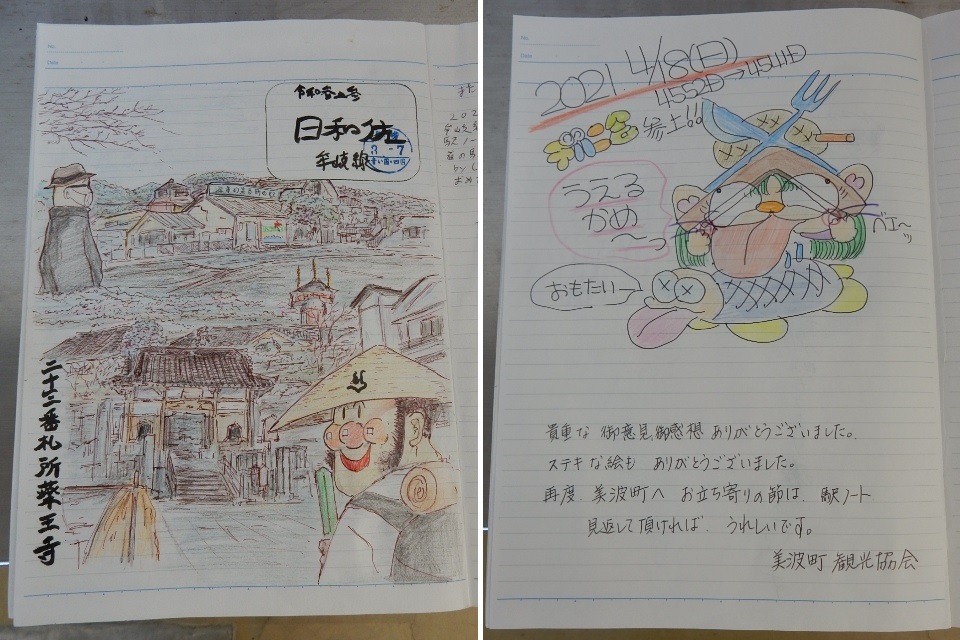 日和佐
牟岐線
3 -7
二十三番札所薬王寺
No.
Date
2021.4/18(日)
4552D→4544D
参上!!
うえる
かめ
~っ
ベエ~ッ
おもたい
貴重な 御意見、御感想 ありがとうございました。
ステキな絵も ありがとうございました。
再度、美波町へ お立ち寄りの節は、駅ノート
見返して頂ければ、うれしいです。
美波町 観光協会